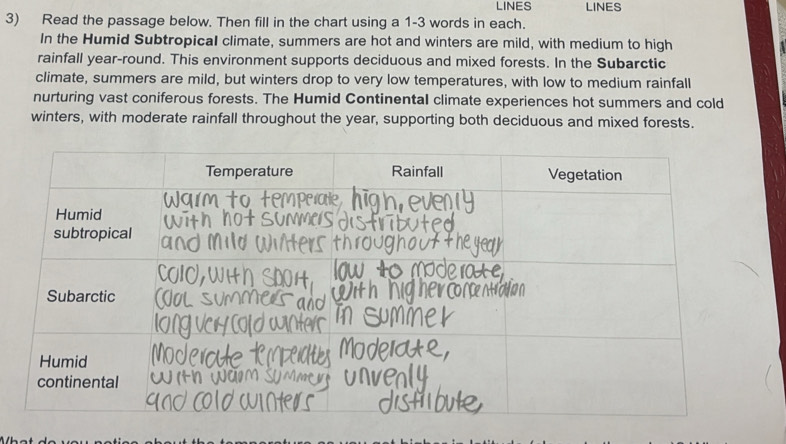 LINES LINES
3) Read the passage below. Then fill in the chart using a 1-3 words in each.
In the Humid Subtropical climate, summers are hot and winters are mild, with medium to high
rainfall year-round. This environment supports deciduous and mixed forests. In the Subarctic
climate, summers are mild, but winters drop to very low temperatures, with low to medium rainfall
nurturing vast coniferous forests. The Humid Continental climate experiences hot summers and cold
winters, with moderate rainfall throughout the year, supporting both deciduous and mixed forests.
Temperature Rainfall Vegetation
Humid
subtropical
warm to temperate,
with hot summers
and mild winters
high, evenly
distributed
throughout the year
Subarctic
cold, with short,
cool summers and
long very cold winters
low to moderate,
with higher concentration
in summer
Humid
continental
Moderate
with warm summers
and cold winters
Moderate,
unvenly
distribute,